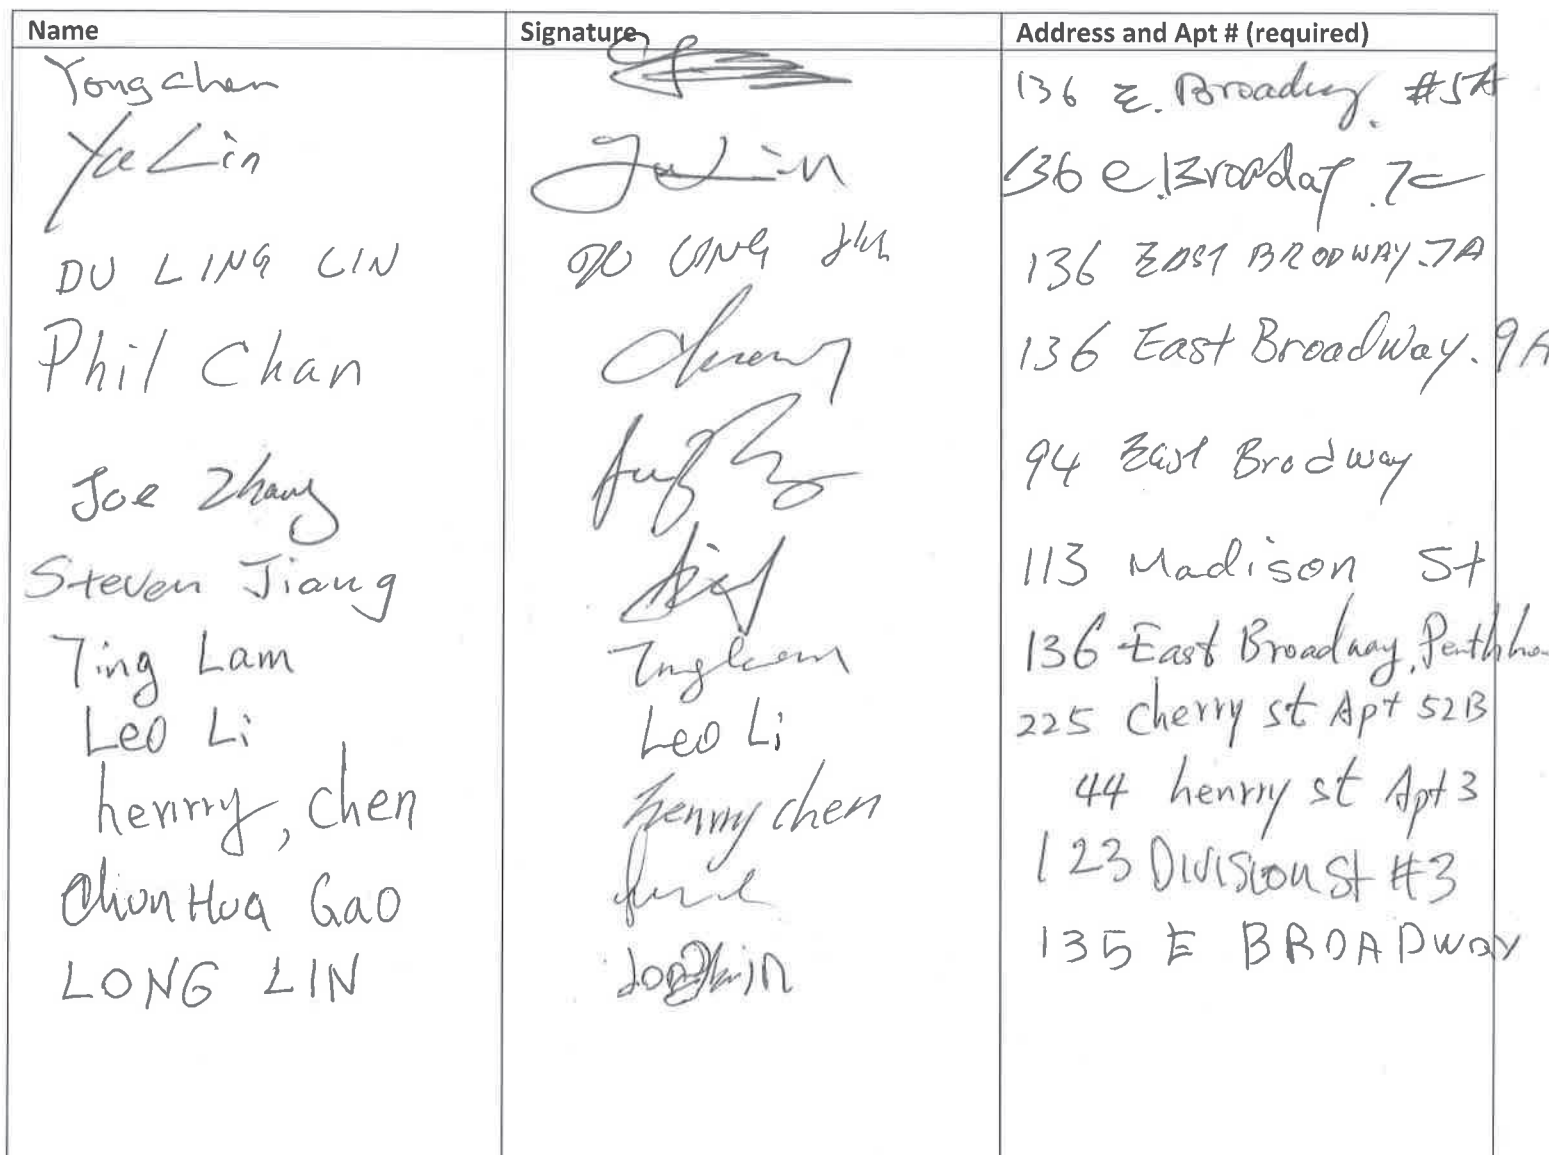 Name Signature Address and Apt # (required)
Yong chen 136 E. Broadway. #5A
Ya Lin Ya Lin 136 e.Broaday .7c
DU LING LIN DU LING LIN 136 EAST BRODWAY.7A
Phil Chan 136 East Broadway. 9A
Joe Zhang 94 East Brodway
Steven Jiang 113 Madison St
Ting Lam Ting Lam 136 East Broadway,
Leo Li Leo Li 225 Cherry st Apt 52B
henrry, chen henrry chen 44 henrry st Apt 3
ChunHua Gao 123 Division St #3
LONG LIN 135 E BROADway